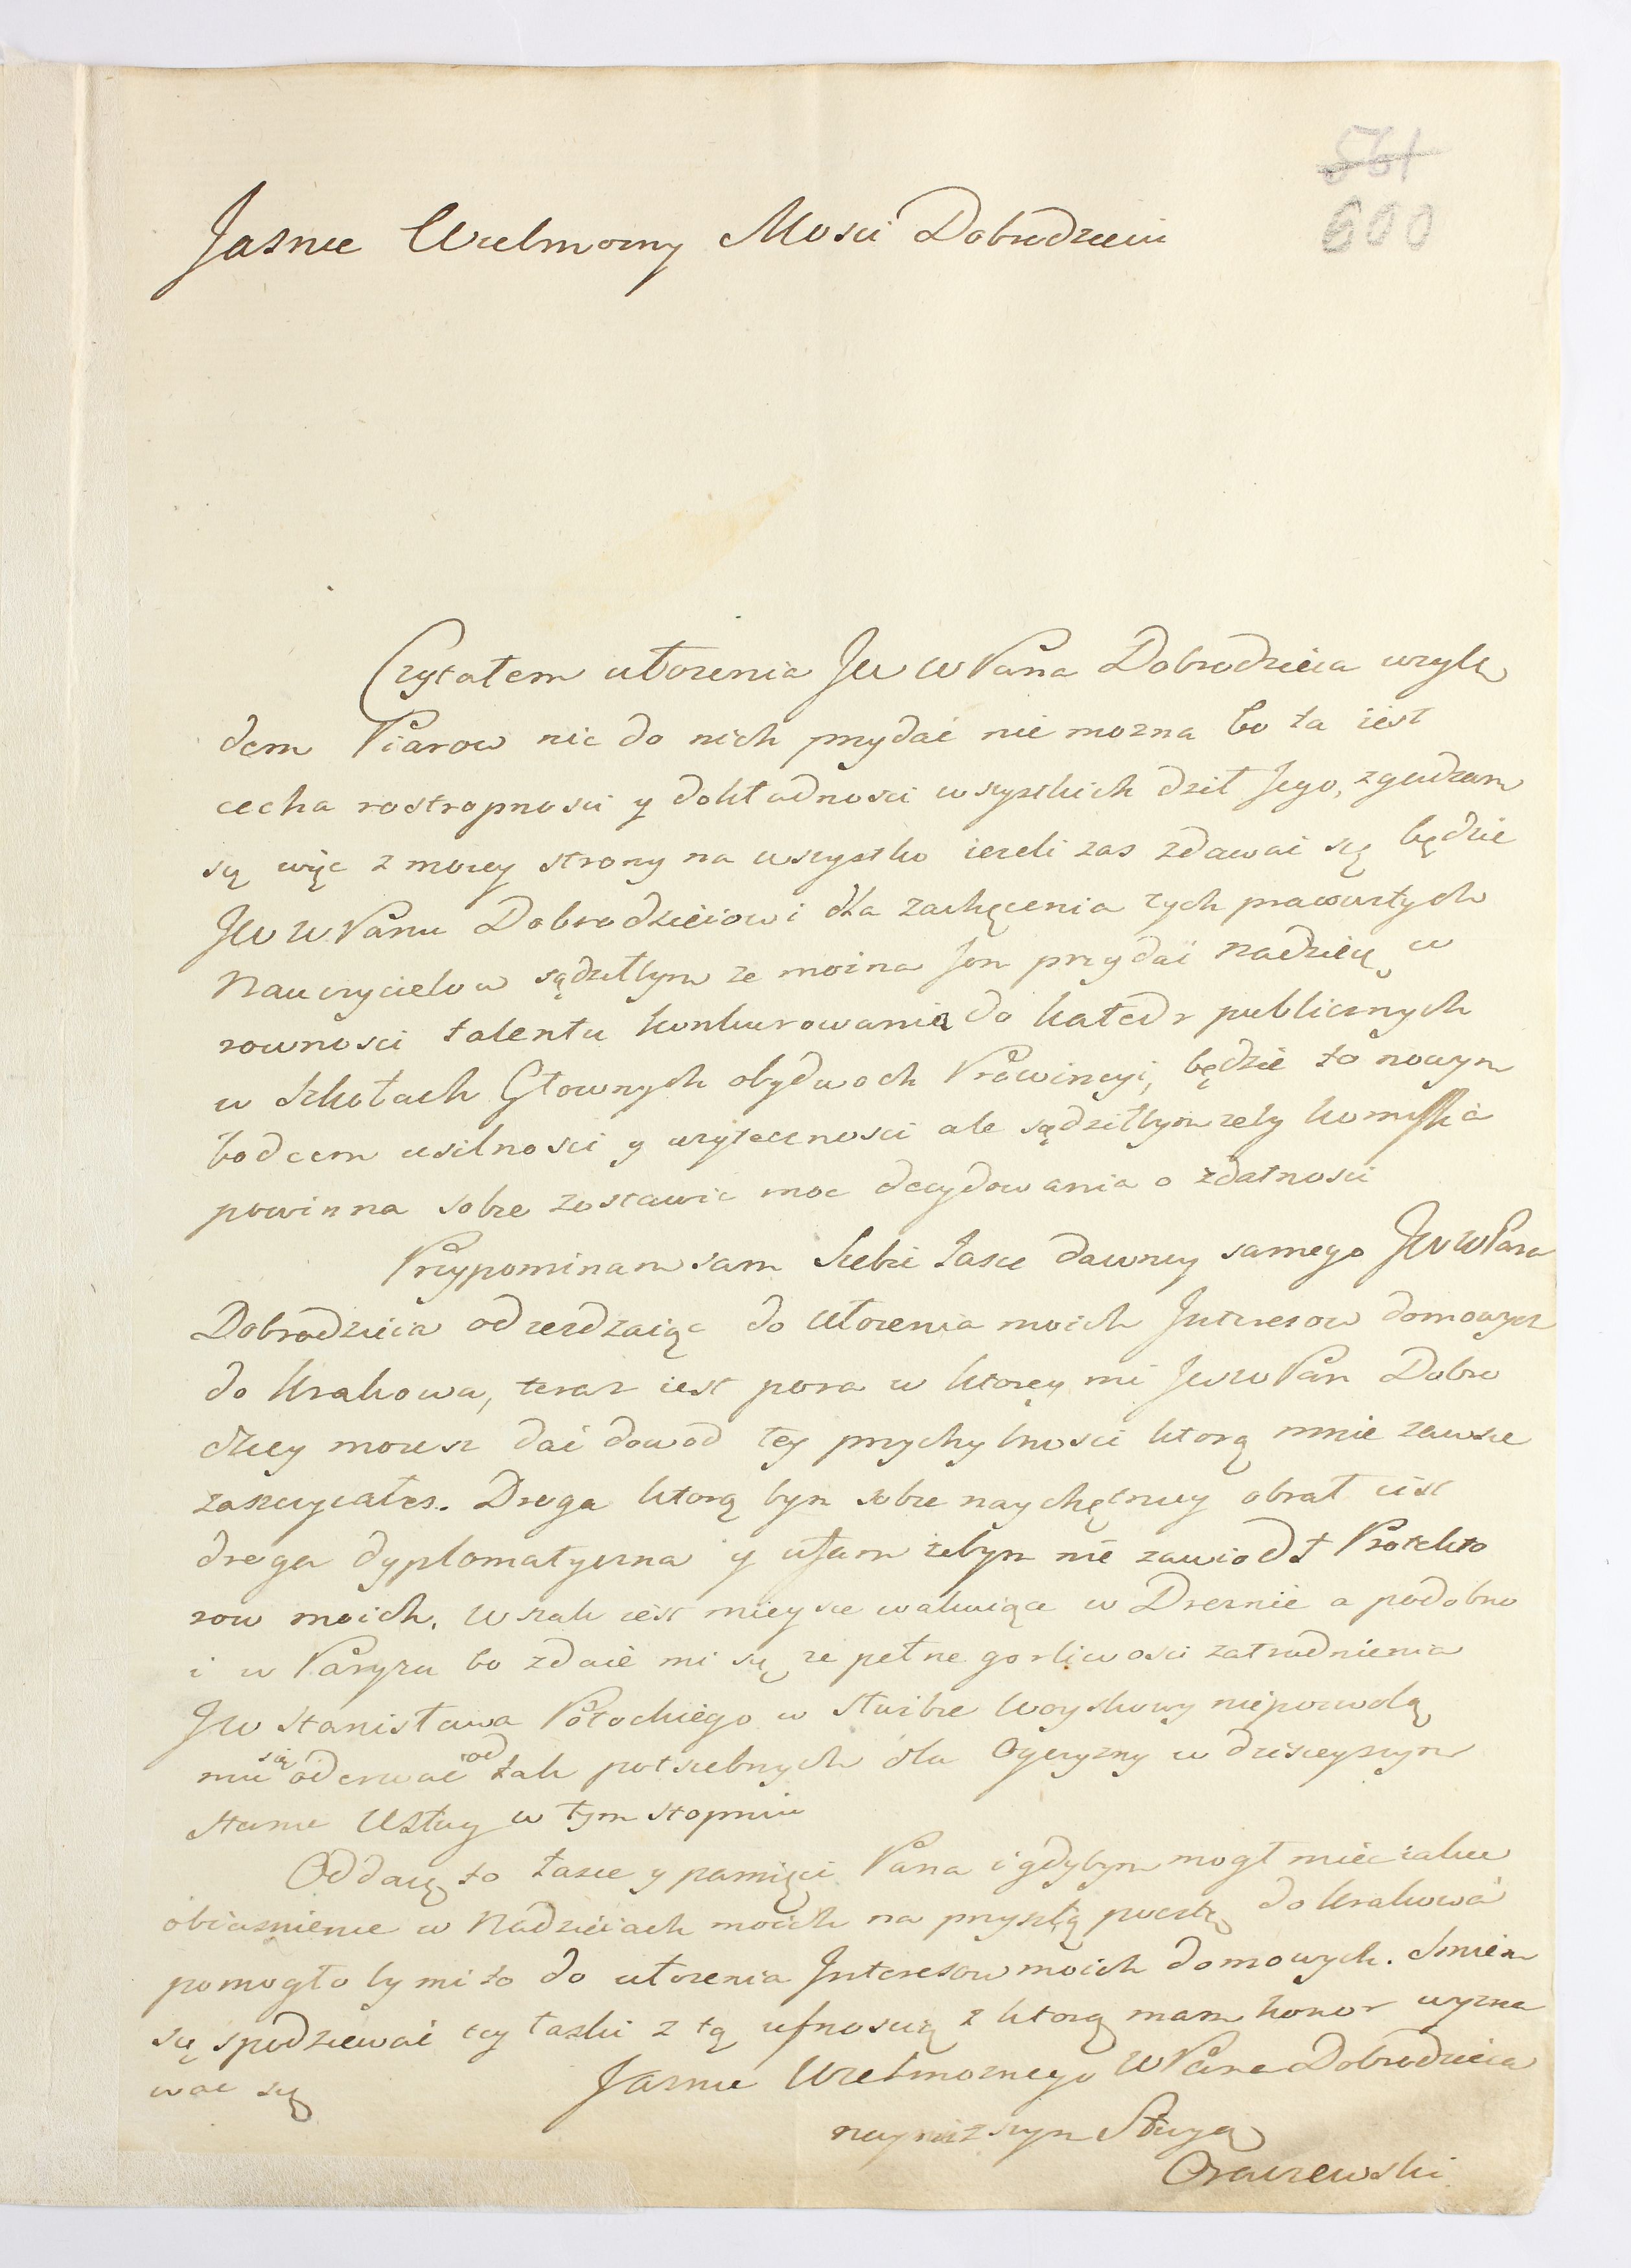 561
600
Jasnie Wielmozny Mosci Dobrodzieiu
Czytałem ułozenia JW W Pana Dobrodzieia wzglę
dem Piarow nic do nich przydać nie mozna bo ta iest
cecha rostropnosci y dokładnosci wszystkich dził Jego, zgadzam
się więc z moiey strony na wszystko iezeli zas zdawać się będzie
JW W Panu Dobrodzieiowi dla zachęcenia tych prawowitych
Nauczycielow sądziłbym ze mozna Jm przydać nadzieię w
rownosci talentu konkurowania do katedr publicznych
w Szkołach Głownych obydwoch Prowincyi, będzie to nowym
bodcem usilnosci y uzytecznosci ale sądziłbym zeby kommissia
powinna sobie zostawic moc decydowania o zdatnosci
Przypominam sam siebie łasce dawney samego JW W Pana
Dobrodzieia odiezdzaiąc do ułozenia moich Interesow domowych
do Krakowa, teraz iest pora w ktorey mi JW W Pan Dobro
dziey mozesz dać dowod tey przychylnosci ktorą mnie zawsze
zaszczycałes. Droga ktorą bym sobie naychętniey obrał iest
droga dyplomatyczna y ufam zebym nie zawiodł Protekto
row moich. Wszak iest mieysce wakuiące w Dreznie a podobno
i w Paryzu bo zdaie mi się ze pełne gorliwosci zatrudnienia
JW Stanisława Potockiego w słuzbie woyskowy niepozwolą
mu się oderwać od tak potrzebnych dla Oyczyzny w dzisieyszym
stanie Usług w tym stopniu
Oddaię to łasce y pamięci Pana i gdybym mogł miec iakie
obiasnienie w Nadzieiach moich na przyszłą pocztę do Krakowa
pomogło by mi to do ułozenia Interesow moich domowych. Smiem
się spodziewać tey łaski z tą ufnoscią z ktorą mam honor wyzna
wac się
Jasnie Wielmoznego W Pana Dobrodzieia
naynizszym Sługą
Oraczewski